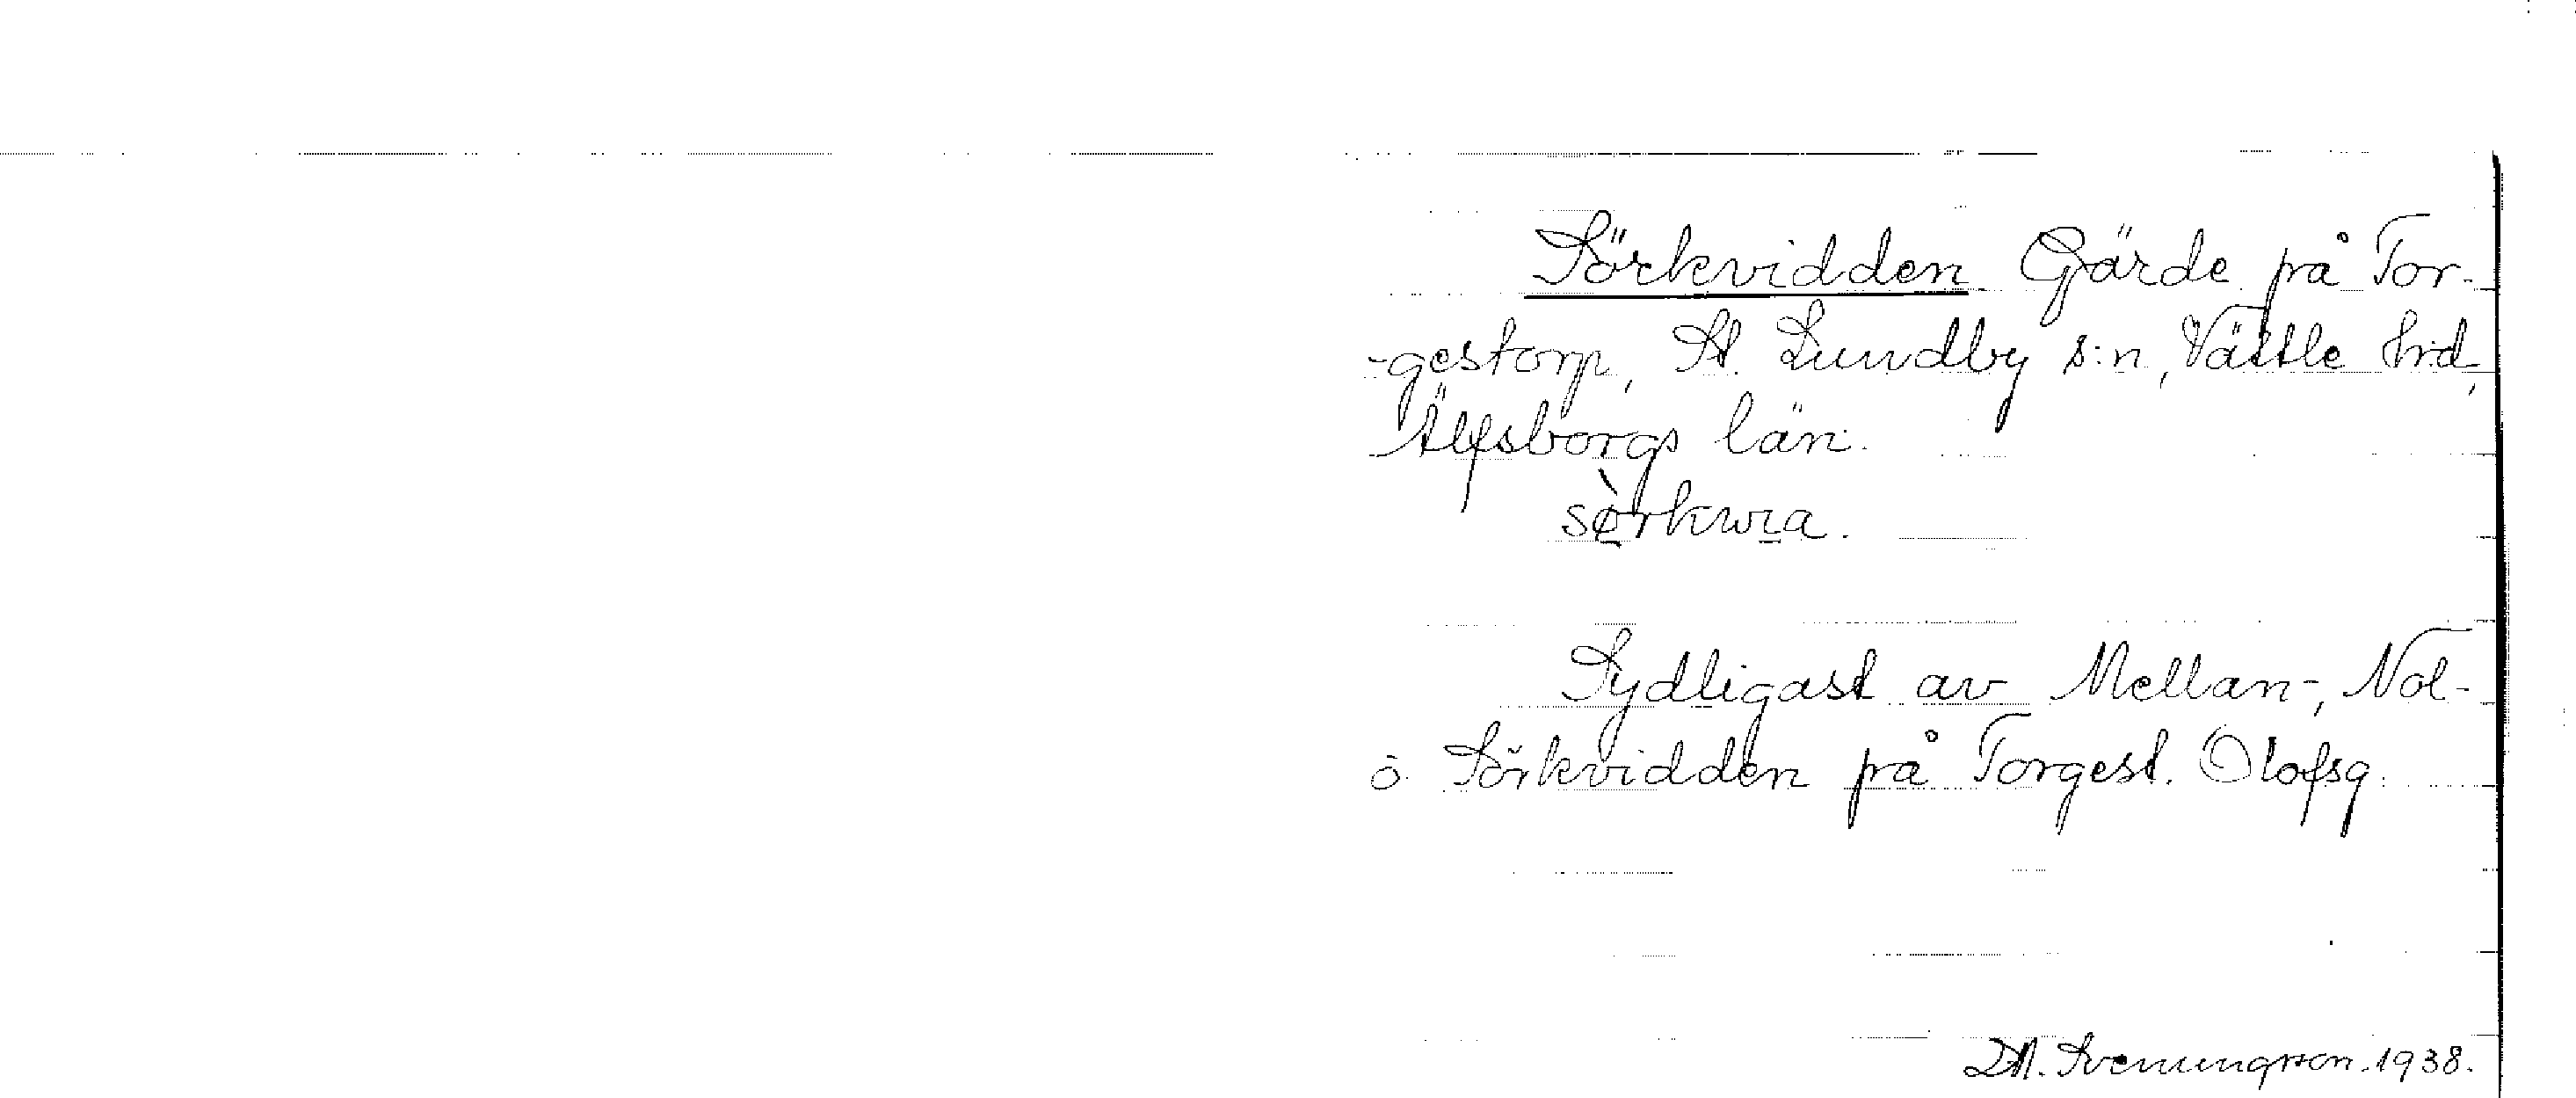 Sörkvidden Gärde på Tor-
-gestorp, St. Lundby s:n, Vättle hrd,
Älfsborgs län.
sè̱rkwɪa.
Sydligast av Mellan-, Nol-
o. Sörkvidden på Torgest. Olofsg.
D.A. Svenungsson. 1938.